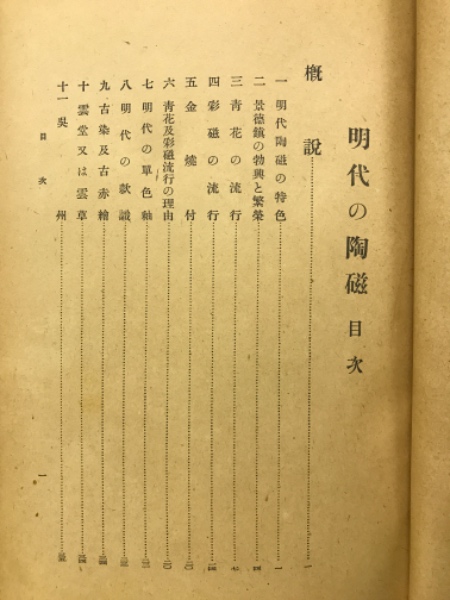 明代の陶磁 目次
概説……一
一 明代陶磁の特色……一
二 景德鎭の勃興と繁榮……四
三 青花の流行……七
四 彩磁の流行
五 金燒付
六 青花及彩磁流行の理由
七 明代の單色釉
八 明代の款識
九 古染及古赤繪
十 雲堂又は雲草
十一 吳州
目次
一